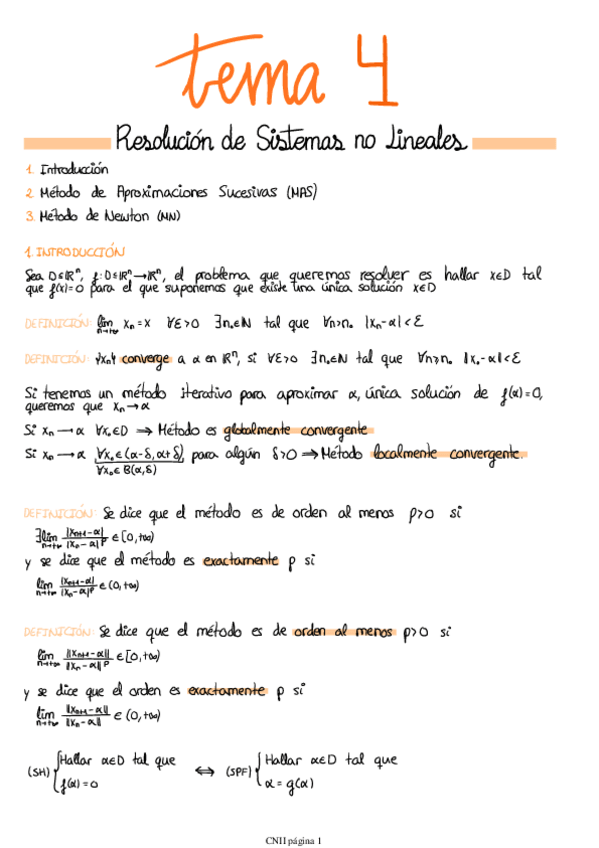 tema 4
Resolución de Sistemas no Lineales
1. Introducción
2. Método de Aproximaciones Sucesivas (MAS)
3. Método de Newton (MN)
1. INTRODUCCIÓN
Sea D⊆ℝⁿ, f:D⊆ℝⁿ→ℝⁿ, el problema que queremos resolver es hallar x∈D tal
que f(x)=0 para el que suponemos que existe una única solución x∈D
DEFINICIÓN: lim_{n→+∞} xₙ=x ∀ε>0 ∃n₀∈ℕ tal que ∀n>n₀ |xₙ-α|<ε
DEFINICIÓN: {xₙ} converge a α en ℝⁿ, si ∀ε>0 ∃n₀∈ℕ tal que ∀n>n₀ ‖xₙ-α‖<ε
Si tenemos un método iterativo para aproximar α, única solución de f(α)=0,
queremos que xₙ→α
Si xₙ→α ∀x₀∈D ⇒ Método es globalmente convergente
Si xₙ→α ∀x₀∈(α-δ,α+δ) para algún δ>0 ⇒ Método localmente convergente.
∀x₀∈B(α,δ)
DEFINICIÓN: Se dice que el método es de orden al menos p>0 si
∃lim_{n→+∞} |xₙ₊₁-α| / |xₙ-α|^p ∈[0,+∞)
y se dice que el método es exactamente p si
lim_{n→+∞} |xₙ₊₁-α| / |xₙ-α|^p ∈(0,+∞)
DEFINICIÓN: Se dice que el método es de orden al menos p>0 si
lim_{n→+∞} ‖xₙ₊₁-α‖ / ‖xₙ-α‖^p ∈[0,+∞)
y se dice que el orden es exactamente p si
lim_{n→+∞} ‖xₙ₊₁-α‖ / ‖xₙ-α‖ ∈(0,+∞)
(SH) { Hallar α∈D tal que ⟷ (SPF) { Hallar α∈D tal que
f(α)=0 α=g(α)
CNII página 1